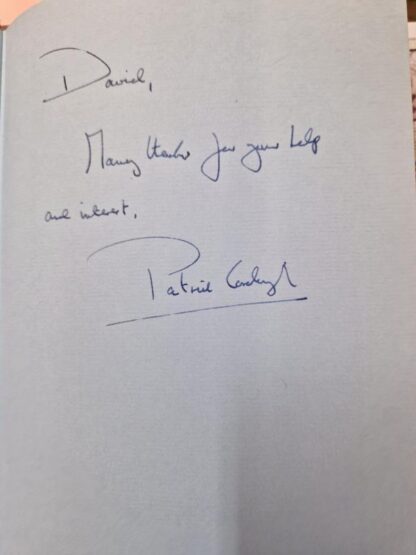 David,
Many thanks for your help
and interest,
Patrick